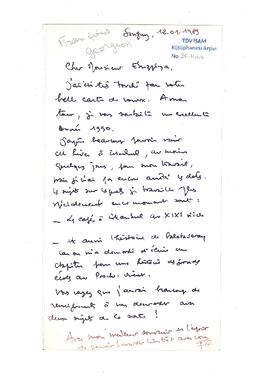 François
Georgeon
Savigny, 12.01.1989
TDV İSAM
Kütüphanesi Arşivi
No
Cher Monsieur
j'ai été touché par votre
belle carte de voeux. A mon
tour, je vous souhaite une excellente
année 1990.
J'espère beaucoup pouvoir venir
cet hiver à Istanbul, au moins
quelques jours, pour mon travail,
mais je n'ai pas encore arrêté de dates.
sujets sur lesquels je travaille plus
spécialement en ce moment sont :
- Le café à Istanbul au XIXe siècle
- et aussi l'histoire de Galatasaray
car on m'a demandé d'écrire un
chapitre pour une histoire des grandes
écoles au Proche-Orient.
Vous voyez que j'aurai beaucoup de
renseignements à vous demander aux
deux sujets de ce sorte !
Avec mon meilleur souvenir et l'espoir
de pouvoir bientôt